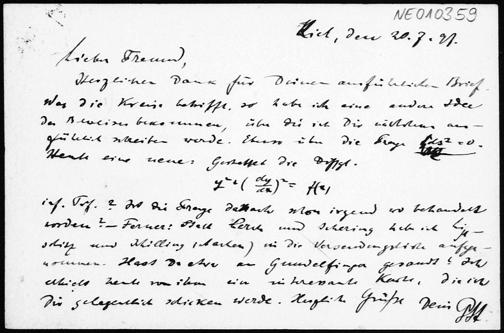 NE010359
Kiel, den 20.7.27.
Lieber Freund,
Herzlichen Dank für Deinen ausführlichen Brief.
Was die Kreise betrifft, so habe ich eine andere Idee
des Beweises bekommen, über die ich Dir nächstens aus-
führlich schreiben werde. Etwas über die Frage = 0.
Heute eine neue: Gestattet die Diffgl.
y² + (dy/dx)² = f(x)
Ist die Frage schon irgend wo behandelt
worden? – Ferner: Statt Lerch und Schering habe ich
und Schilling (Aachen) in die Versendungsliste aufge-
nommen. Hast Du etwas an Gundelfinger gesandt? Ich
erhielt heute von ihm eine interessante Karte, die ich
Dir gelegentlich schicken werde. Herzliche Grüße Dein